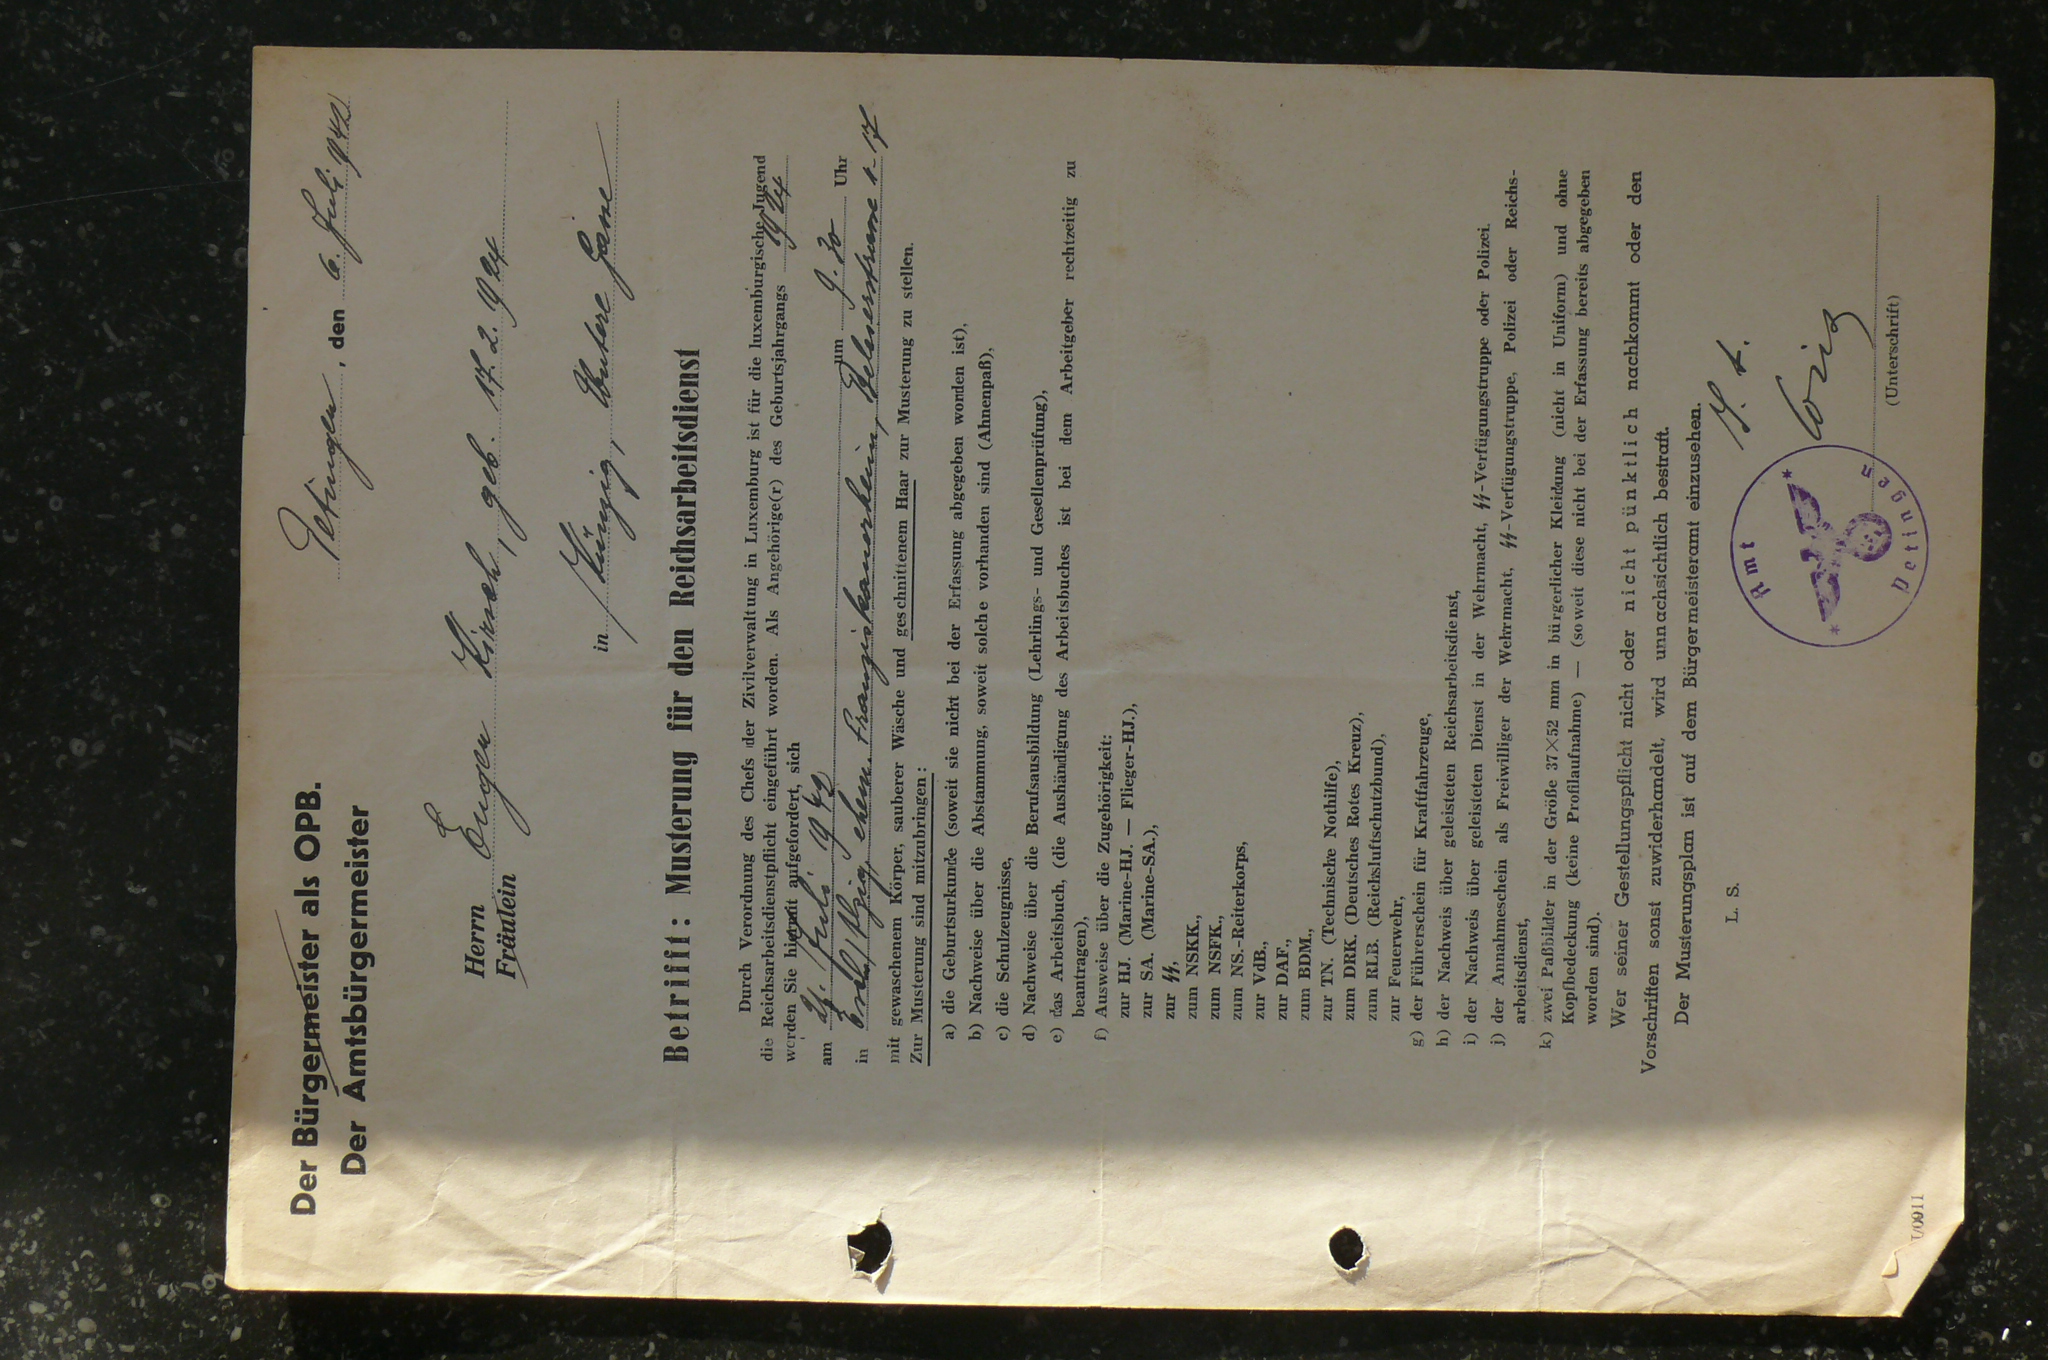 Der Bürgermeister als OPB.
Der Amtsbürgermeister
Petingen, den 6. Juli 1942
Herrn
Fräulein
Eugen Kirsch, geb. 17. 2. 1924
in Künzig, Untere Gasse
Betrifft: Musterung für den Reichsarbeitsdienst
Durch Verordnung des Chefs der Zivilverwaltung in Luxemburg ist für die luxemburgische Jugend
die Reichsarbeitsdienstpflicht eingeführt worden. Als Angehörige(r) des Geburtsjahrgangs 1924
werden Sie hiermit aufgefordert, sich
am 21. Juli 1942 um 9.30 Uhr
in Esch/Alzig, ehem. Franziskanerheim,
mit gewaschenem Körper, sauberer Wäsche und geschnittenem Haar zur Musterung zu stellen.
Zur Musterung sind mitzubringen:
a) die Geburtsurkunde (soweit sie nicht bei der Erfassung abgegeben worden ist),
b) Nachweise über die Abstammung, soweit solche vorhanden sind (Ahnenpaß),
c) die Schulzeugnisse,
d) Nachweise über die Berufsausbildung (Lehrlings- und Gesellenprüfung),
e) das Arbeitsbuch, (die Aushändigung des Arbeitsbuches ist bei dem Arbeitgeber rechtzeitig zu
beantragen),
f) Ausweise über die Zugehörigkeit:
zur HJ. (Marine-HJ. — Flieger-HJ.),
zur SA. (Marine-SA.),
zur SS,
zum NSKK.,
zum NSFK.,
zum NS.-Reiterkorps,
zur VdB.,
zur DAF.,
zum BDM.,
zur TN. (Technische Nothilfe),
zum DRK. (Deutsches Rotes Kreuz),
zum RLB. (Reichsluftschutzbund),
zur Feuerwehr,
g) der Führerschein für Kraftfahrzeuge,
h) der Nachweis über geleisteten Reichsarbeitsdienst,
i) der Nachweis über geleisteten Dienst in der Wehrmacht, SS-Verfügungstruppe oder Polizei.
j) der Annahmeschein als Freiwilliger der Wehrmacht, SS-Verfügungstruppe, Polizei oder Reichs-
arbeitsdienst,
k) zwei Paßbilder in der Größe 37×52 mm in bürgerlicher Kleidung (nicht in Uniform) und ohne
Kopfbedeckung (keine Profilaufnahme) — (soweit diese nicht bei der Erfassung bereits abgegeben
worden sind).
Wer seiner Gestellungspflicht nicht oder nicht pünktlich nachkommt oder den
Vorschriften sonst zuwiderhandelt, wird unnachsichtlich bestraft.
Der Musterungsplan ist auf dem Bürgermeisteramt einzusehen.
L. S.
Amt Petingen
(Unterschrift)